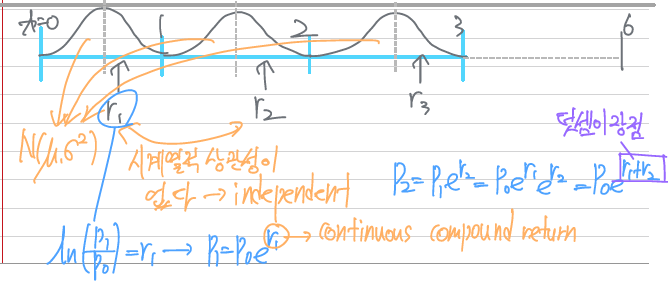 t=0 1 2 3 6
r₁ r₂ r₃
N(μ,σ²)
덧셈이 강점
시계열적 상관성이
없다 → independent
P₂=P₁e^{r₂}=P₀e^{r₁}e^{r₂}=P₀e^{r₁+r₂}
ln(P₁/P₀)=r₁ → P₁=P₀e^{r₁} → continuous compound return